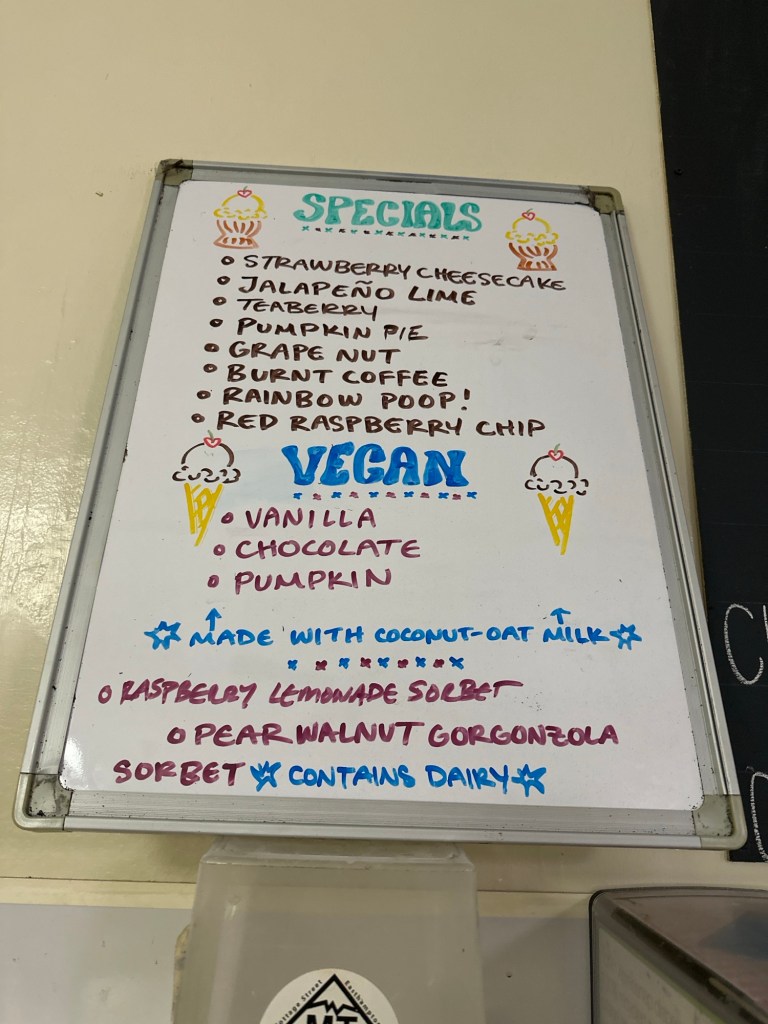 SPECIALS
STRAWBERRY CHEESECAKE
JALAPEÑO LIME
TEABERRY
PUMPKIN PIE
GRAPE NUT
BURNT COFFEE
RAINBOW POOP!
RED RASPBERRY CHIP
VEGAN
VANILLA
CHOCOLATE
PUMPKIN
MADE WITH COCONUT-OAT MILK
RASPBERRY LEMONADE SORBET
PEAR WALNUT GORGONZOLA
SORBET CONTAINS DAIRY
Cottage Street Easthampton
MT